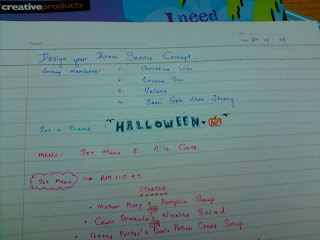 creativeproducts
I need
Design your Room Service Concept.
Group members: 1. Christine Lim
2.
3. Valerie
4. Sean Goh
Set a Theme: HALLOWEEN
Menu: Set Menu & A'la Carte
Set Menu → RM 110++
STARTER
• Mother Mary's Pumpkin Soup
• Count Dracula's Nicoise Salad
• Harry Potter's Dark Potion Creme Soup